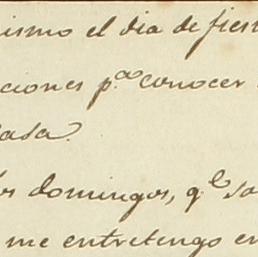 mismo el dia de fiest
ciones p.ᵃ conocer
casa.
los domingos, q.ᵉ sa
me entretengo en